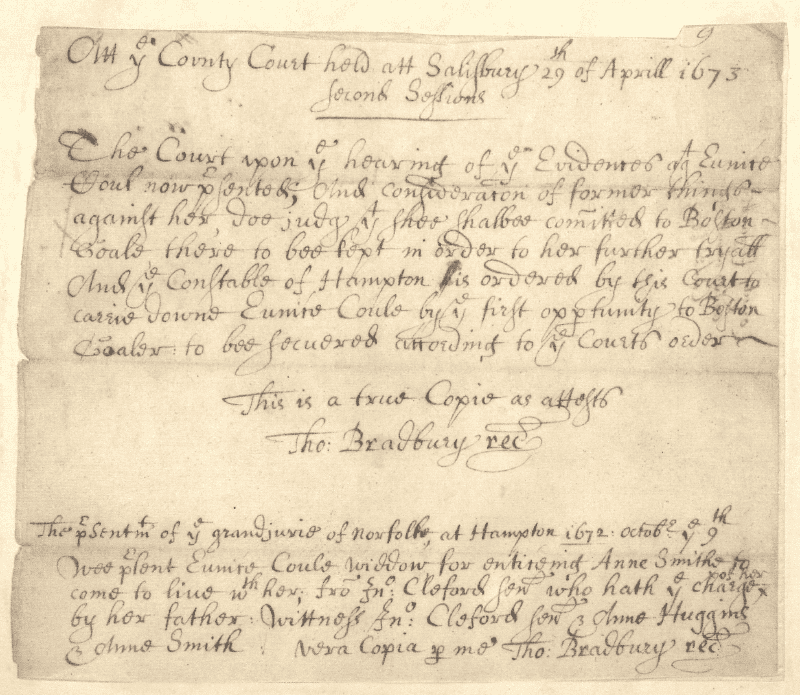 9
Att yᵉ County Court held att Salisbury 29ᵗʰ of Aprill 1673
second Sessions
The Court vpon yᵉ hearing of yᵉ Evidences agᵗ Eunice
Coul now p̄sented, And consideration of former things
against her, doe judg yᵗ shee shalbee com̄itted to Boston
Goale there to bee kept in order to her further tryall
And yᵉ Constable of Hampton is ordered by this Court to
carrie downe Eunice Coule by yᵉ first opp̱tunity to Boston
Goaler: to bee secuered according to yᵉ Courts order
This is a true Copie as attests
Tho: Bradbury recᵈ
The p̄sentmᵗ of yᵉ grandjurie of Norfolke, at Hampton 1672: octobᵉʳ yᵉ 9ᵗʰ
Wee p̄sent Eunice Coule widdow for enticeing Anne Smithe to
come to live wᵗʰ her, fro̅ Jnᵒ: Cleford senʳ who hath yᵉ charge of her
by her father: Wittness Jnᵒ: Cleford senʳ & Anne Huggins
& Anne Smith : vera Copia ꝑ me Tho: Bradbury recᵈ